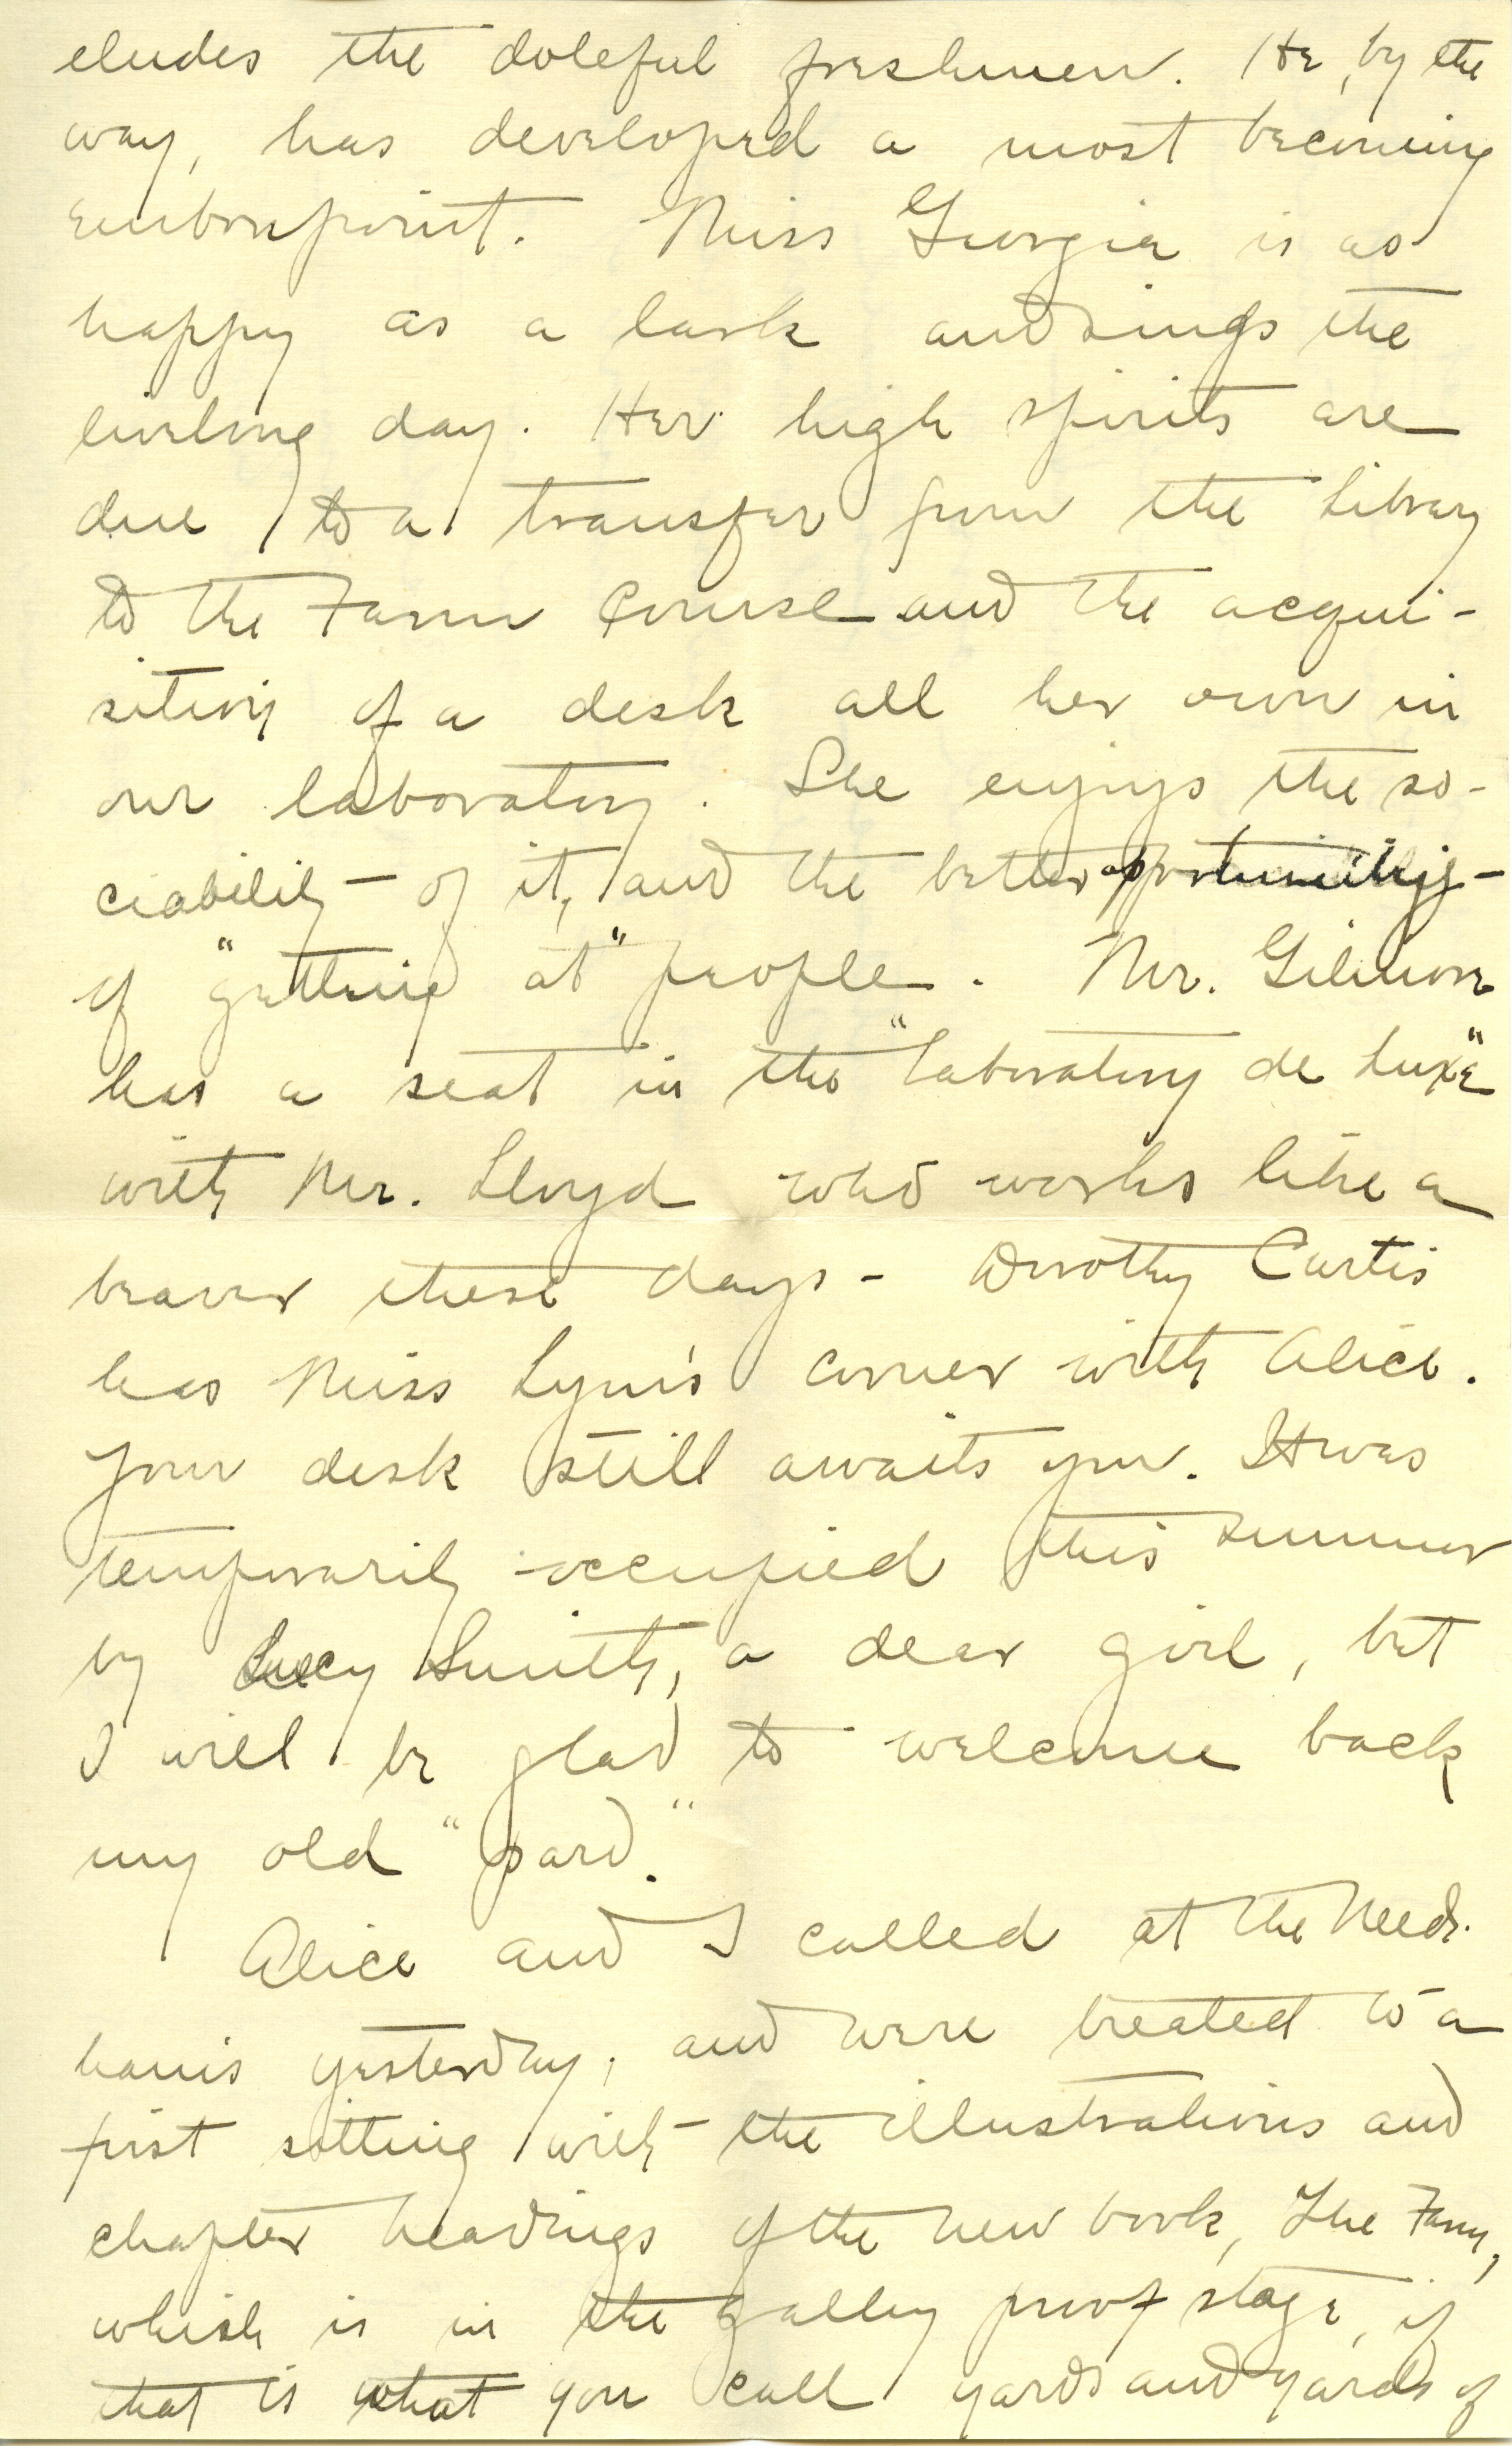 eludes the doleful freshmen. He, by the
way, has developed a most becoming
embonpoint. Miss Georgia is as
happy as a lark and sings the
livelong day. Her high spirits are
due to a transfer from the Library
to the Farm Course and the acqui-
sition of a desk all her own in
our laboratory. She enjoys the so-
ciability of it, and the better opportunity
of "getting at" people. Mr. Gilmore
has a seat in the "Laboratory de Luxe"
with Mr. Lloyd who works like a
beaver these days - Dorothy Curtis
has Miss Lyon's corner with Alice.
Your desk still awaits you. It was
temporarily occupied this summer
by Lucy Smith, a dear girl, but
I will be glad to welcome back
my old "pard."
Alice and I called at the Need-
ham's yesterday, and were treated to a
first sitting with the illustrations and
chapter headings of the new book, The Farm,
which is in the galley proof stage, if
that is what you call yards and yards of